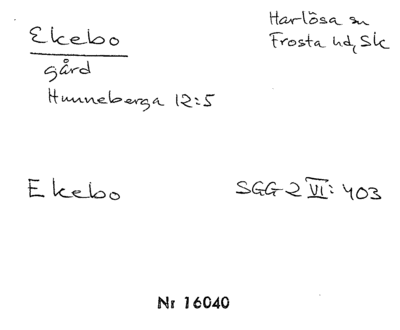 Ekebo
gård
Hunneberga 12:5
Harlösa sn
Frosta hd, Sk
Ekebo
SGG 2 VI: 403
Nr 16040